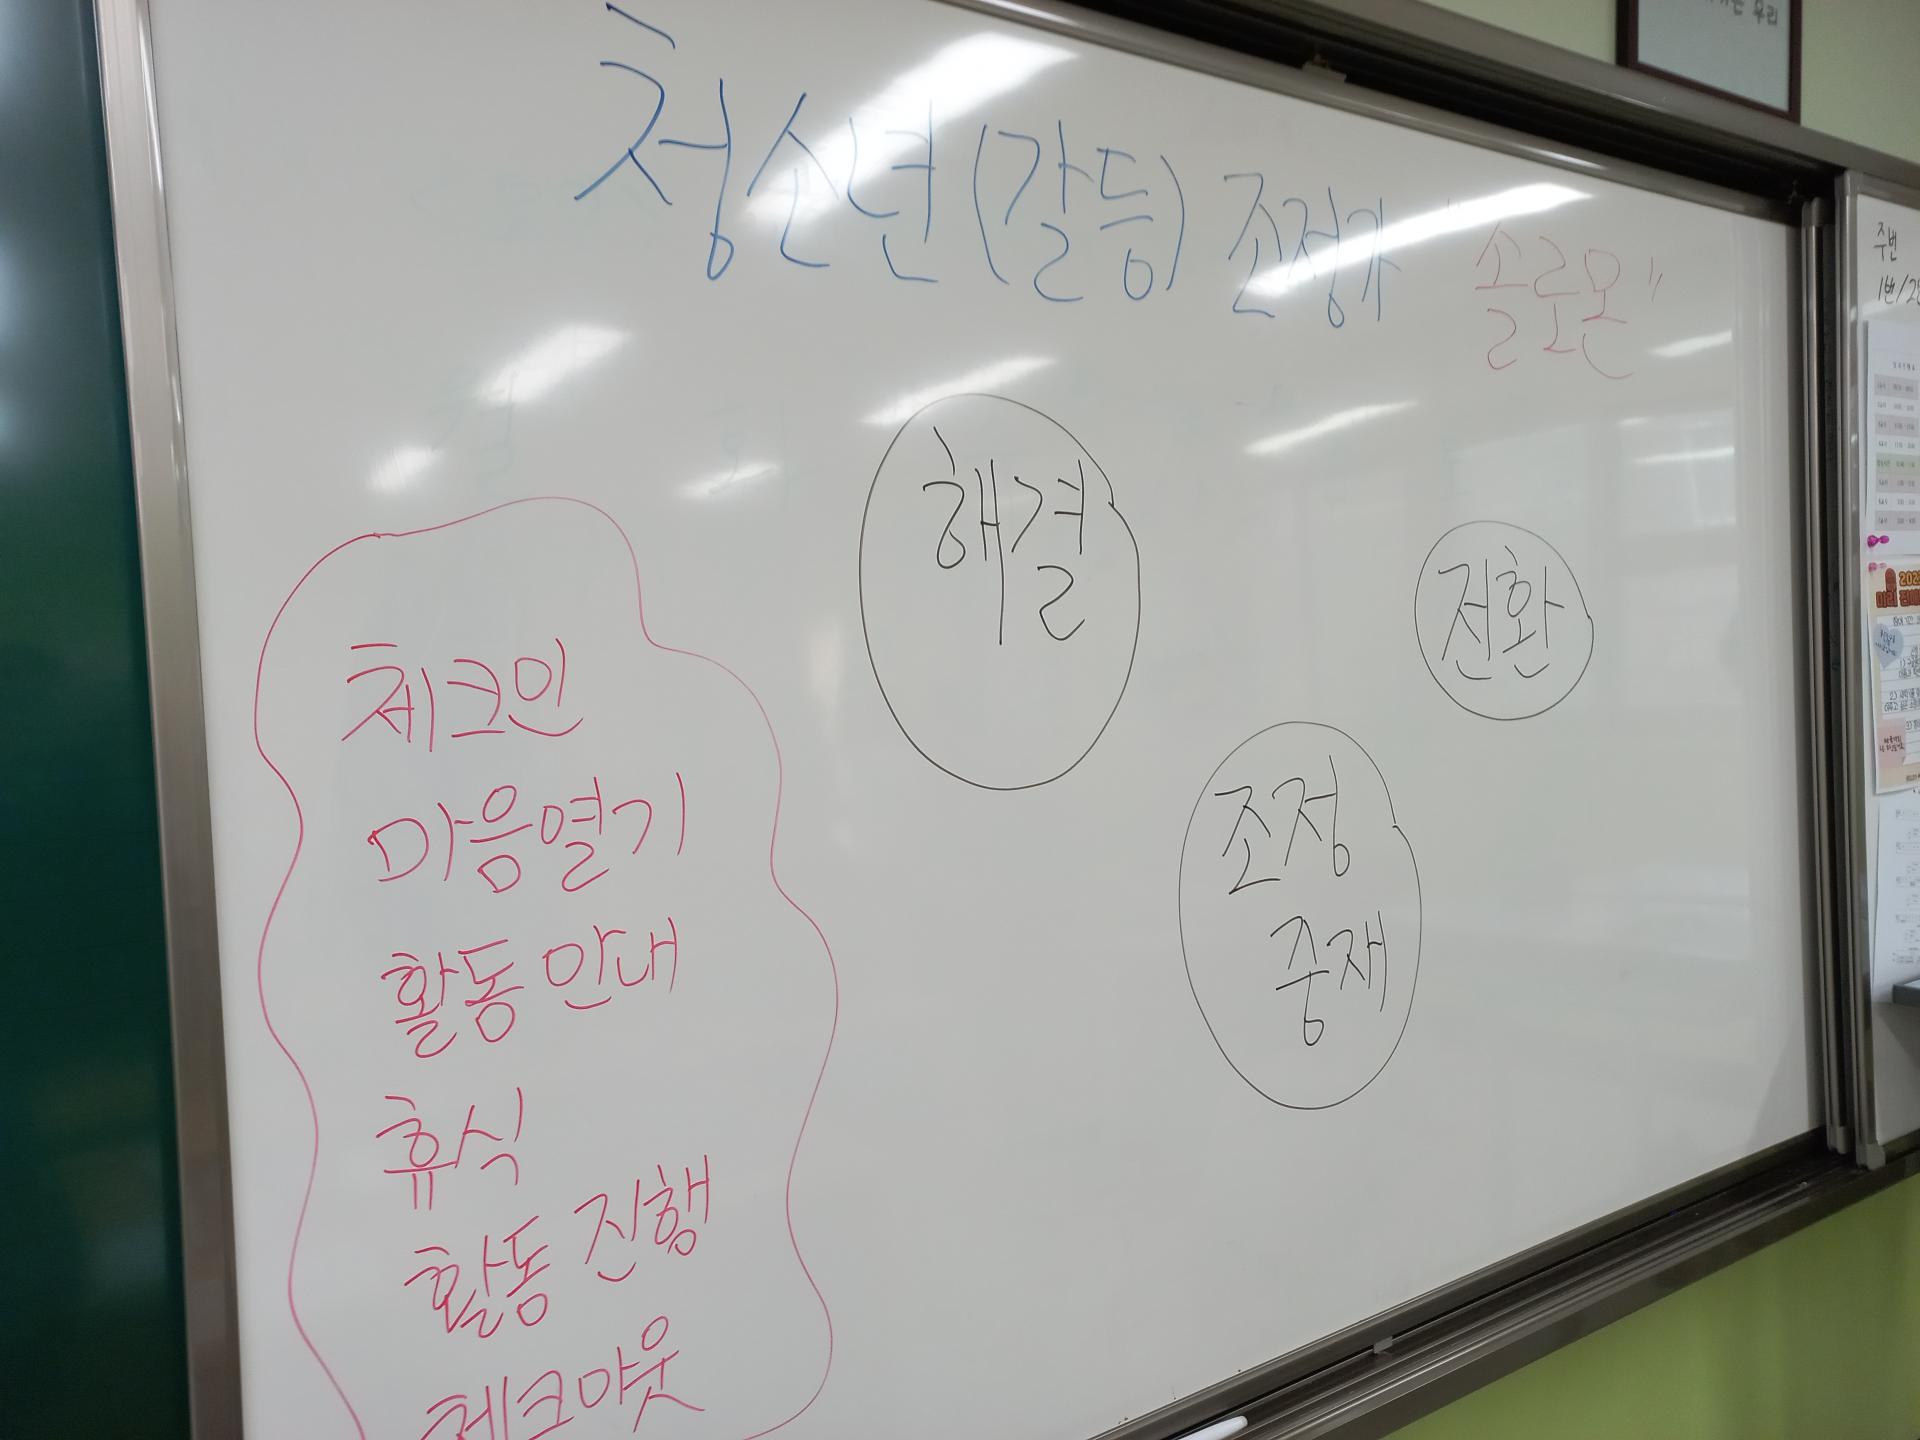 청소년 (갈등) 조정가 "솔로몬"
해결
전환
조정
중재
체크인
마음열기
활동 안내
휴식
활동 진행
체크아웃
주번